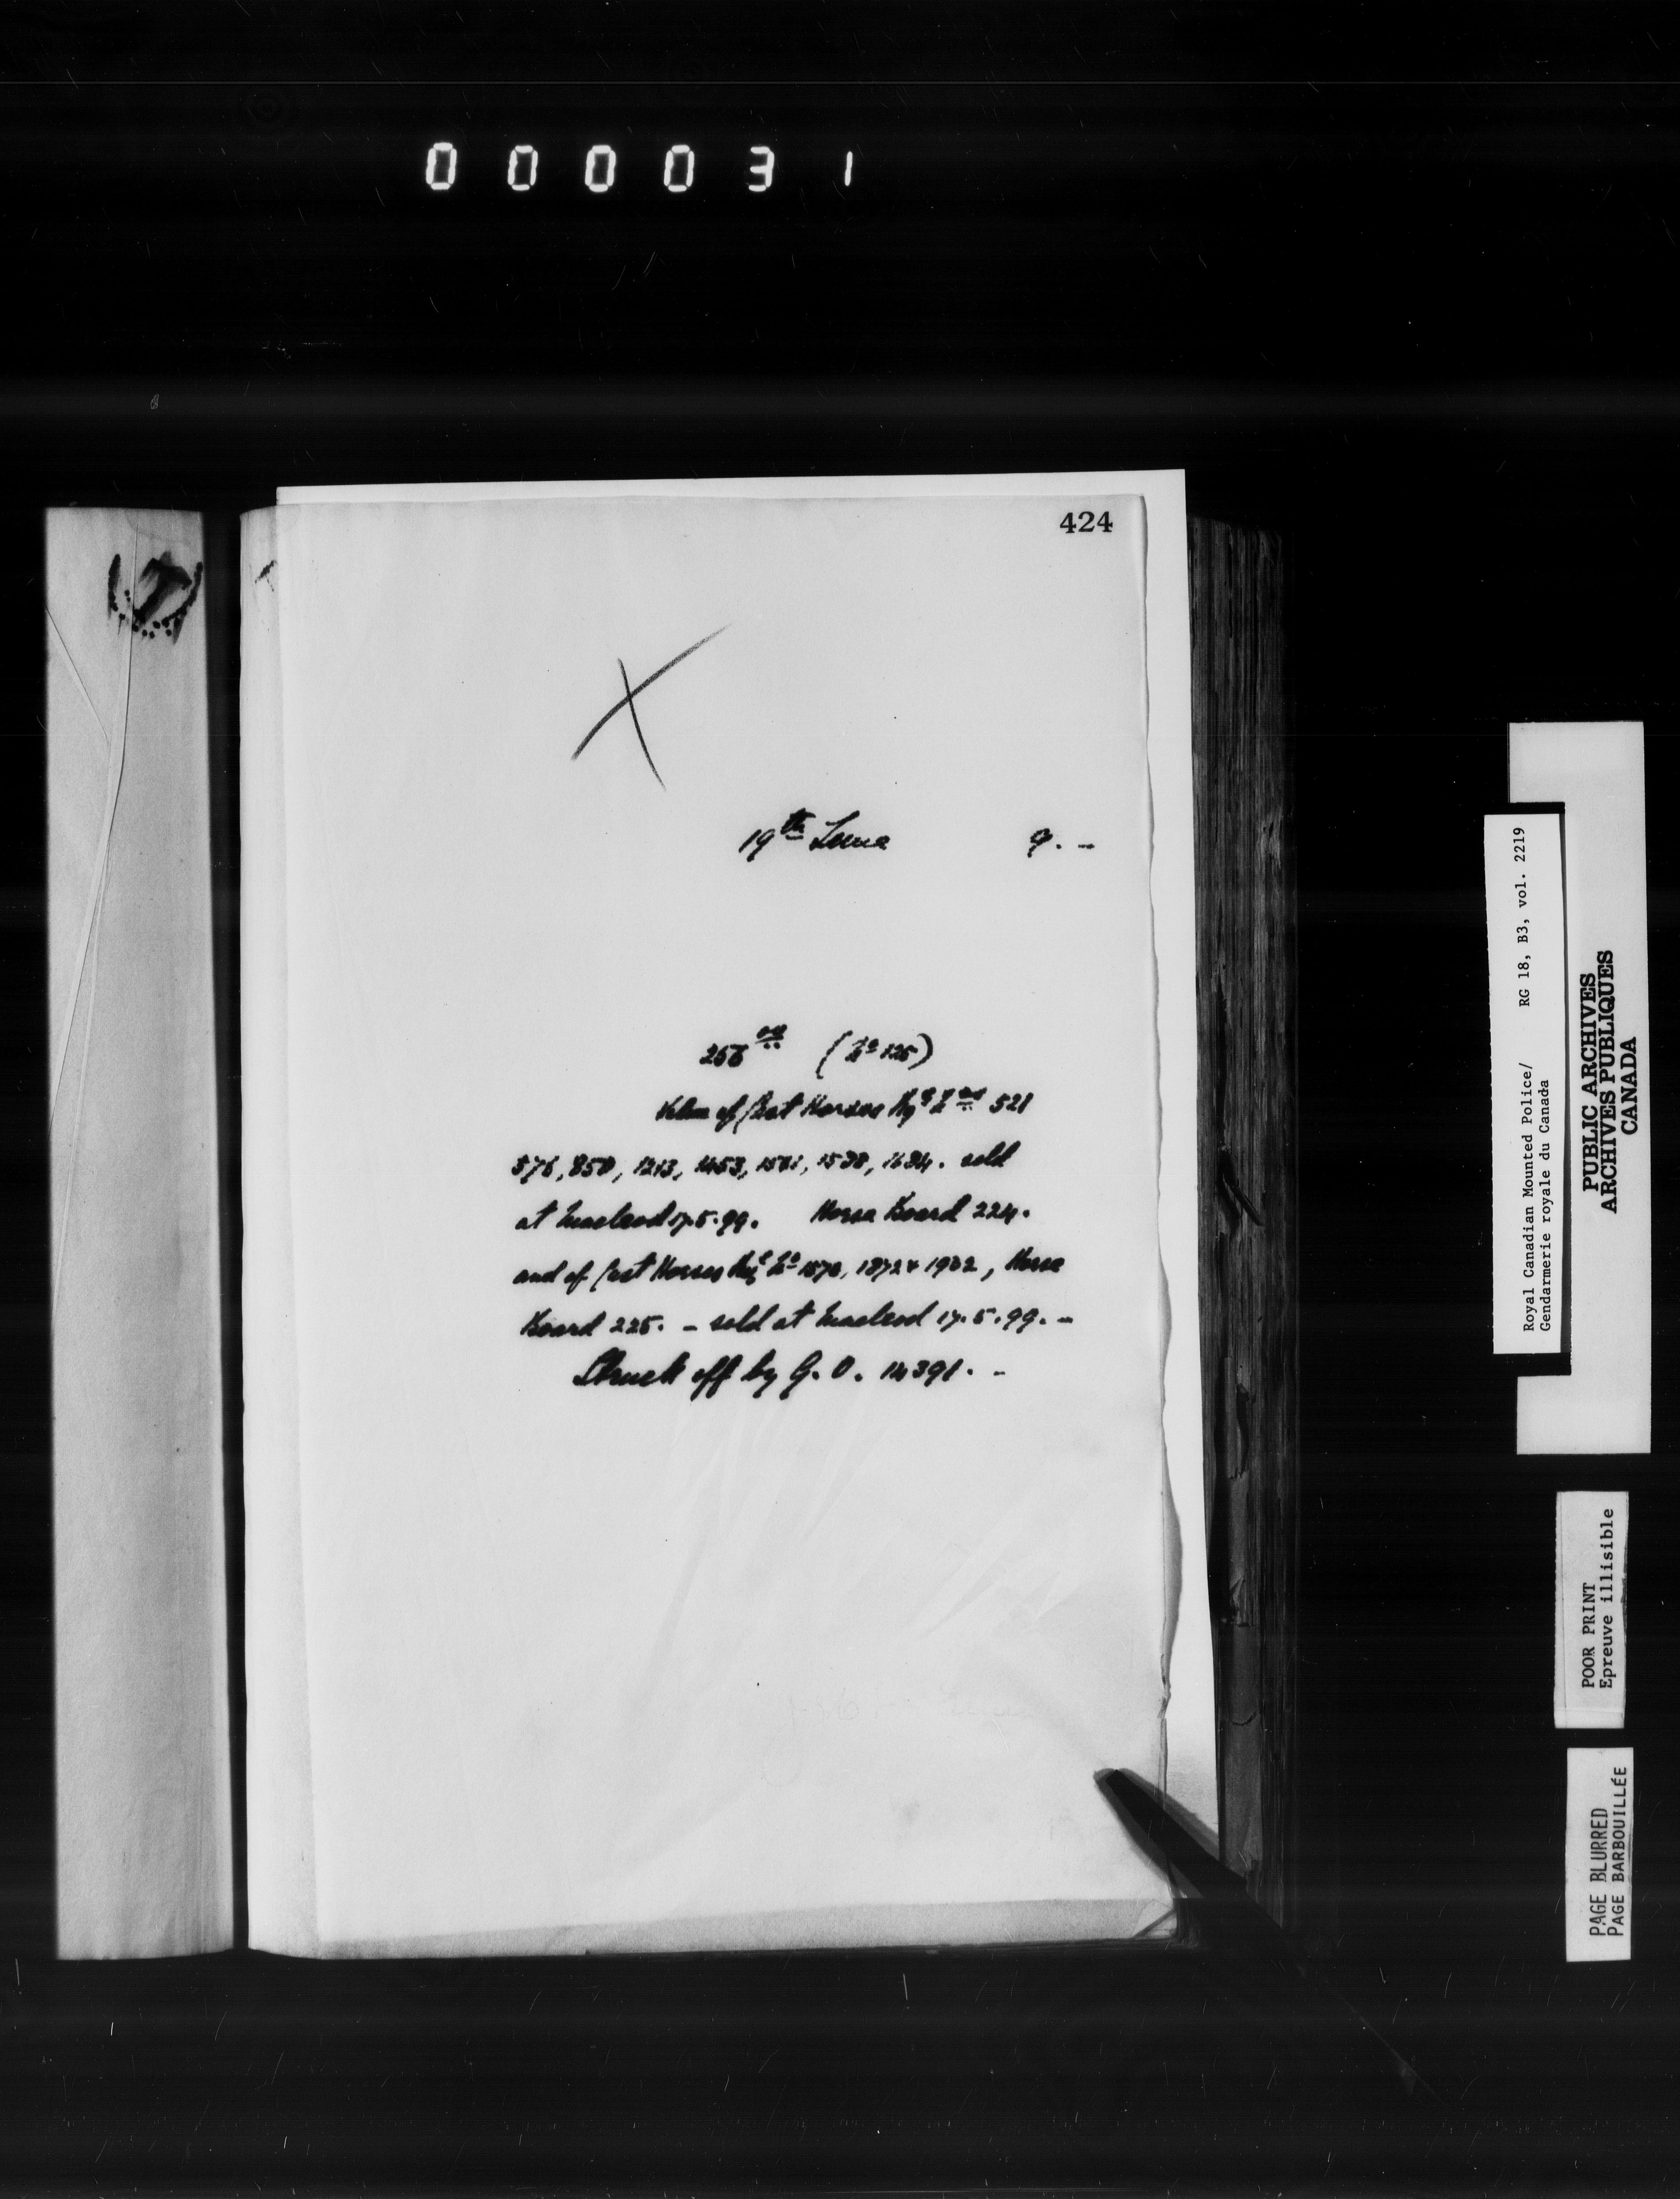 000031
424
X
19th June 9. -
(No 125)
of Cast Horses Regl Nos 521
576, 850, 1213, 1453, 1501, 1538, 1634. sold
at Macleod 17.5.99. Horse Board 224.
and of Cast Horses Regl No 1870, 1872 & 1902, Horse
Board 225. - sold at Macleod 17.5.99. -
Struck off by G. O. 14391. -
Royal Canadian Mounted Police/ RG 18, B3, vol. 2219
Gendarmerie royale du Canada
PUBLIC ARCHIVES
ARCHIVES PUBLIQUES
CANADA
POOR PRINT
Epreuve illisible
PAGE BLURRED
PAGE BARBOUILLÉE